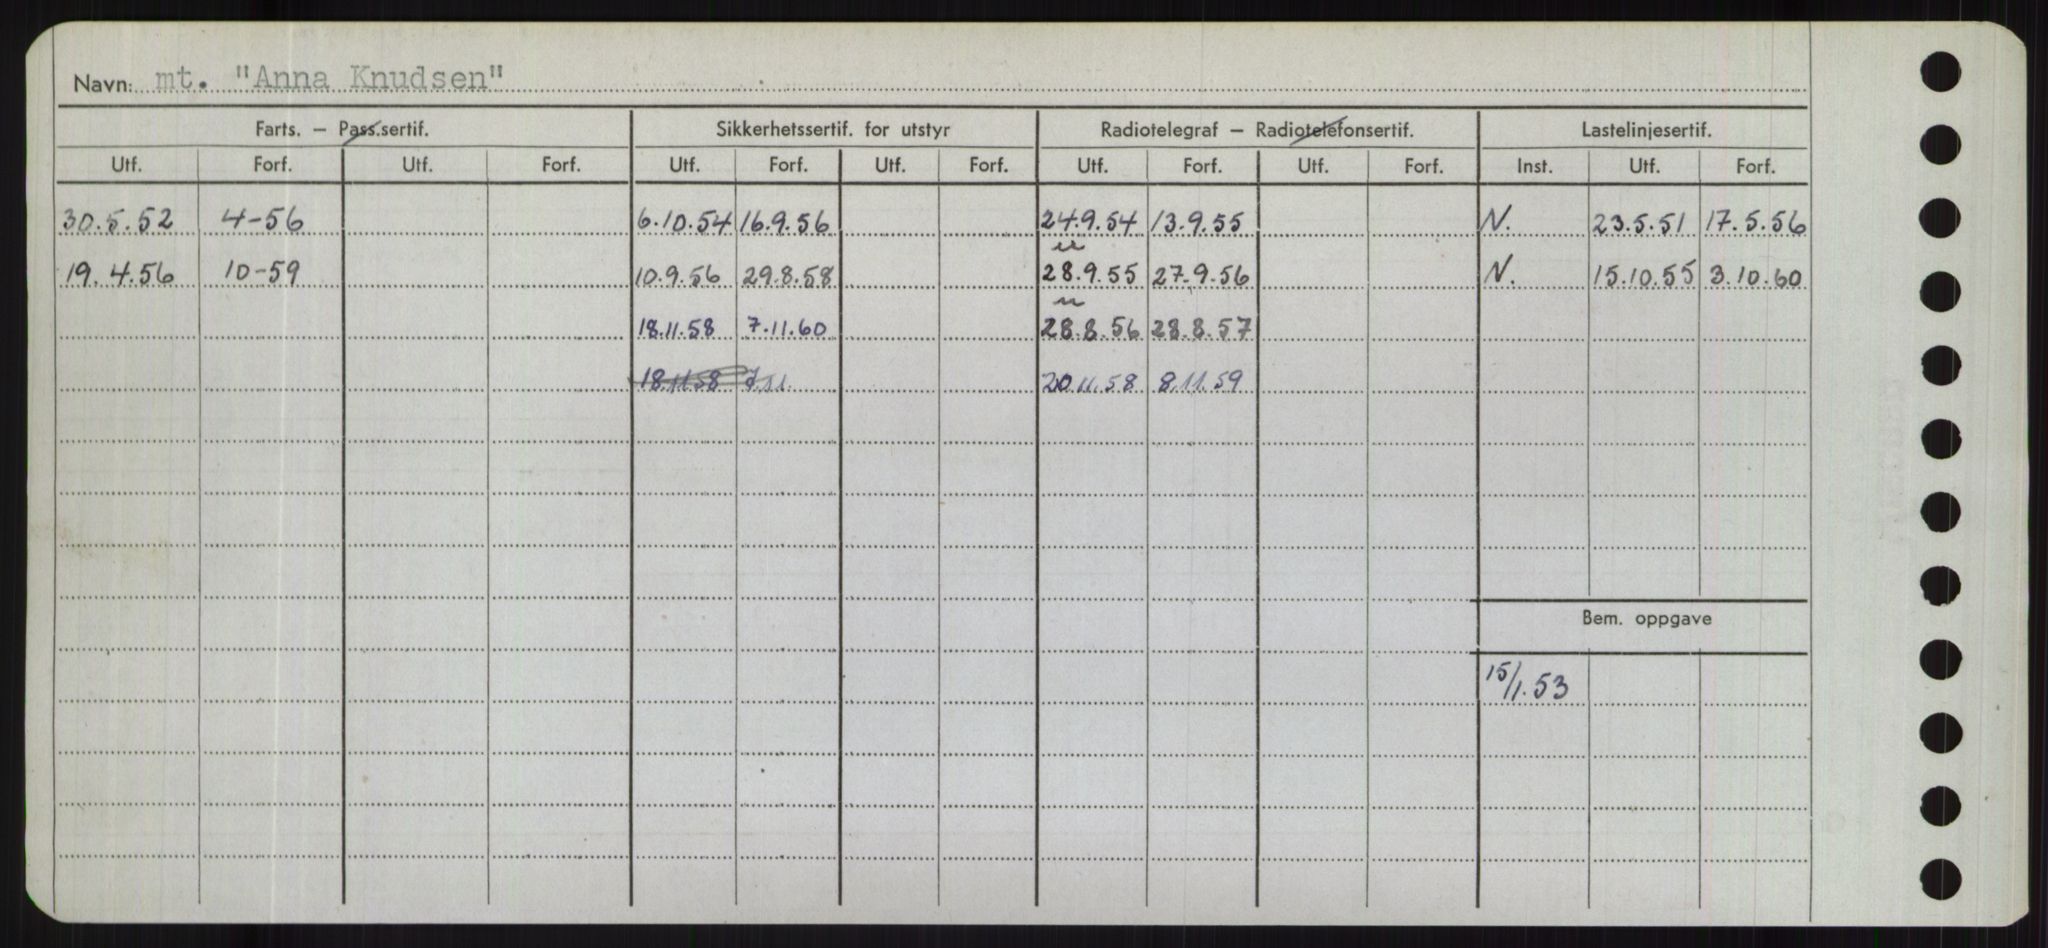 Navn: mt. "Anna Knudsen"
Farts. — Pass.sertif. Sikkerhetssertif. for utstyr Radiotelegraf — Radiotelefonsertif. Lastelinjesertif.
Utf. Forf. Utf. Forf. Utf. Forf. Utf. Forf. Utf. Forf. Utf. Forf. Inst. Utf. Forf.
30.5.52 4-56 6.10.54 16.9.56 24.9.54 13.9.55 N. 23.5.51 17.5.56
19.4.56 10-59 10.9.56 29.8.58 28.9.55 27.9.56 N. 15.10.55 3.10.60
18.11.58 7.11.60 28.8.56 28.8.57
18.11.58 7.11. 20.11.58 8.11.59
Bem. oppgave
15/1.53